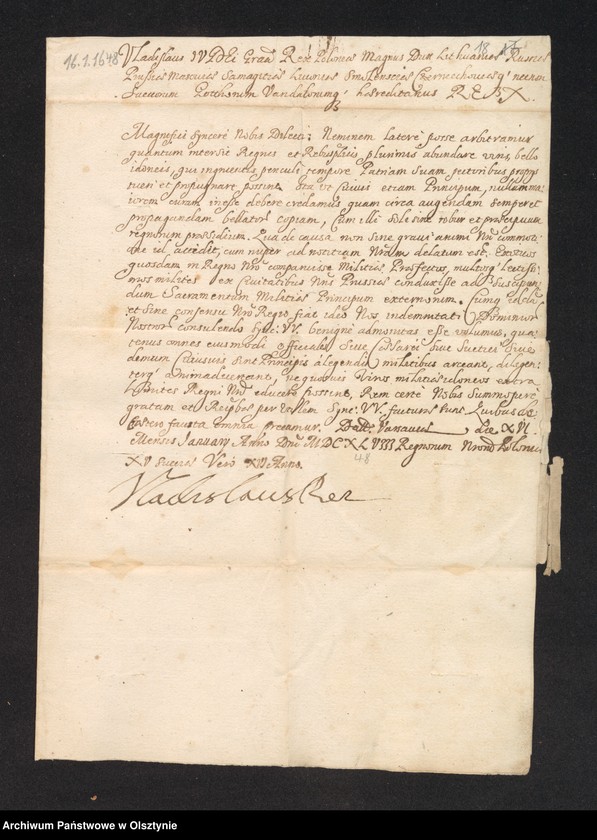 16.1.1648 18
Vladislaus IV DEI Gratia Rex Poloniae Magnus Dux Lithuaniae Russiae
Prussiae Masoviae Samagitiae Livoniae Smolensciae Czernichoviaeq necnon
Suecorum Gotthorum Vandalorumq haereditarius REX.
Magnifici sincere Nobis Dilecti: Neminem latere posse arbitramur
quantum intersit Regnis et Rebuspublicis plurimis abundare viris, bello
idoneis, qui ingruentis periculi tempore Patriam Suam pectoribus
tueri et propugnare possint. Ita ut etiam Principum, nullam ma
iorem curam inesse debere credamus quam circa augendam semper et
propagandam bellatorum copiam, cum illi soli sint robur et praecipuum
regnorum praesidium. Qua de causa non sine gravi animi Nri commoti
one id accidit, cum nuper ad notitiam Nram delatum est. Exoticos
quosdam in Regno Nro comparuisse Militiae Praefectos, multosq lectissi
mos milites ex Civitatibus Nris Prussiae conduxisse ad suscipien
dum Sacramentum Militiae Principum externorum. Cumq
et sine consensu Nro Regio fiat ideo Nos indemnitati Dominiorum
Nostrorum consulendo Sync: VV. benigne admonitas esse volumus, qua
tenus omnes eiusmodi officiales sive Caesarei sive Suetici sive
demum cuiusvis sint Principis a legendis militibus arceant, diligen
terq animadvertant, ne quovis viros militiae idoneos extra
limites Regni Nri educere possint, Rem certe Nobis summopere
gratam et Reipbcae per utilem Sync: VV. facturae sunt. Quibus de
caetero fausta omnia precamur. Datt: Varsaviae die XVI
Mensis Januarii Anno Dni MDCXLVIII Regnorum Nrorum Poloniae
XV Sueciae Vero XVI Anno.
48
Vladislaus Rex
Archiwum Państwowe w Olsztynie